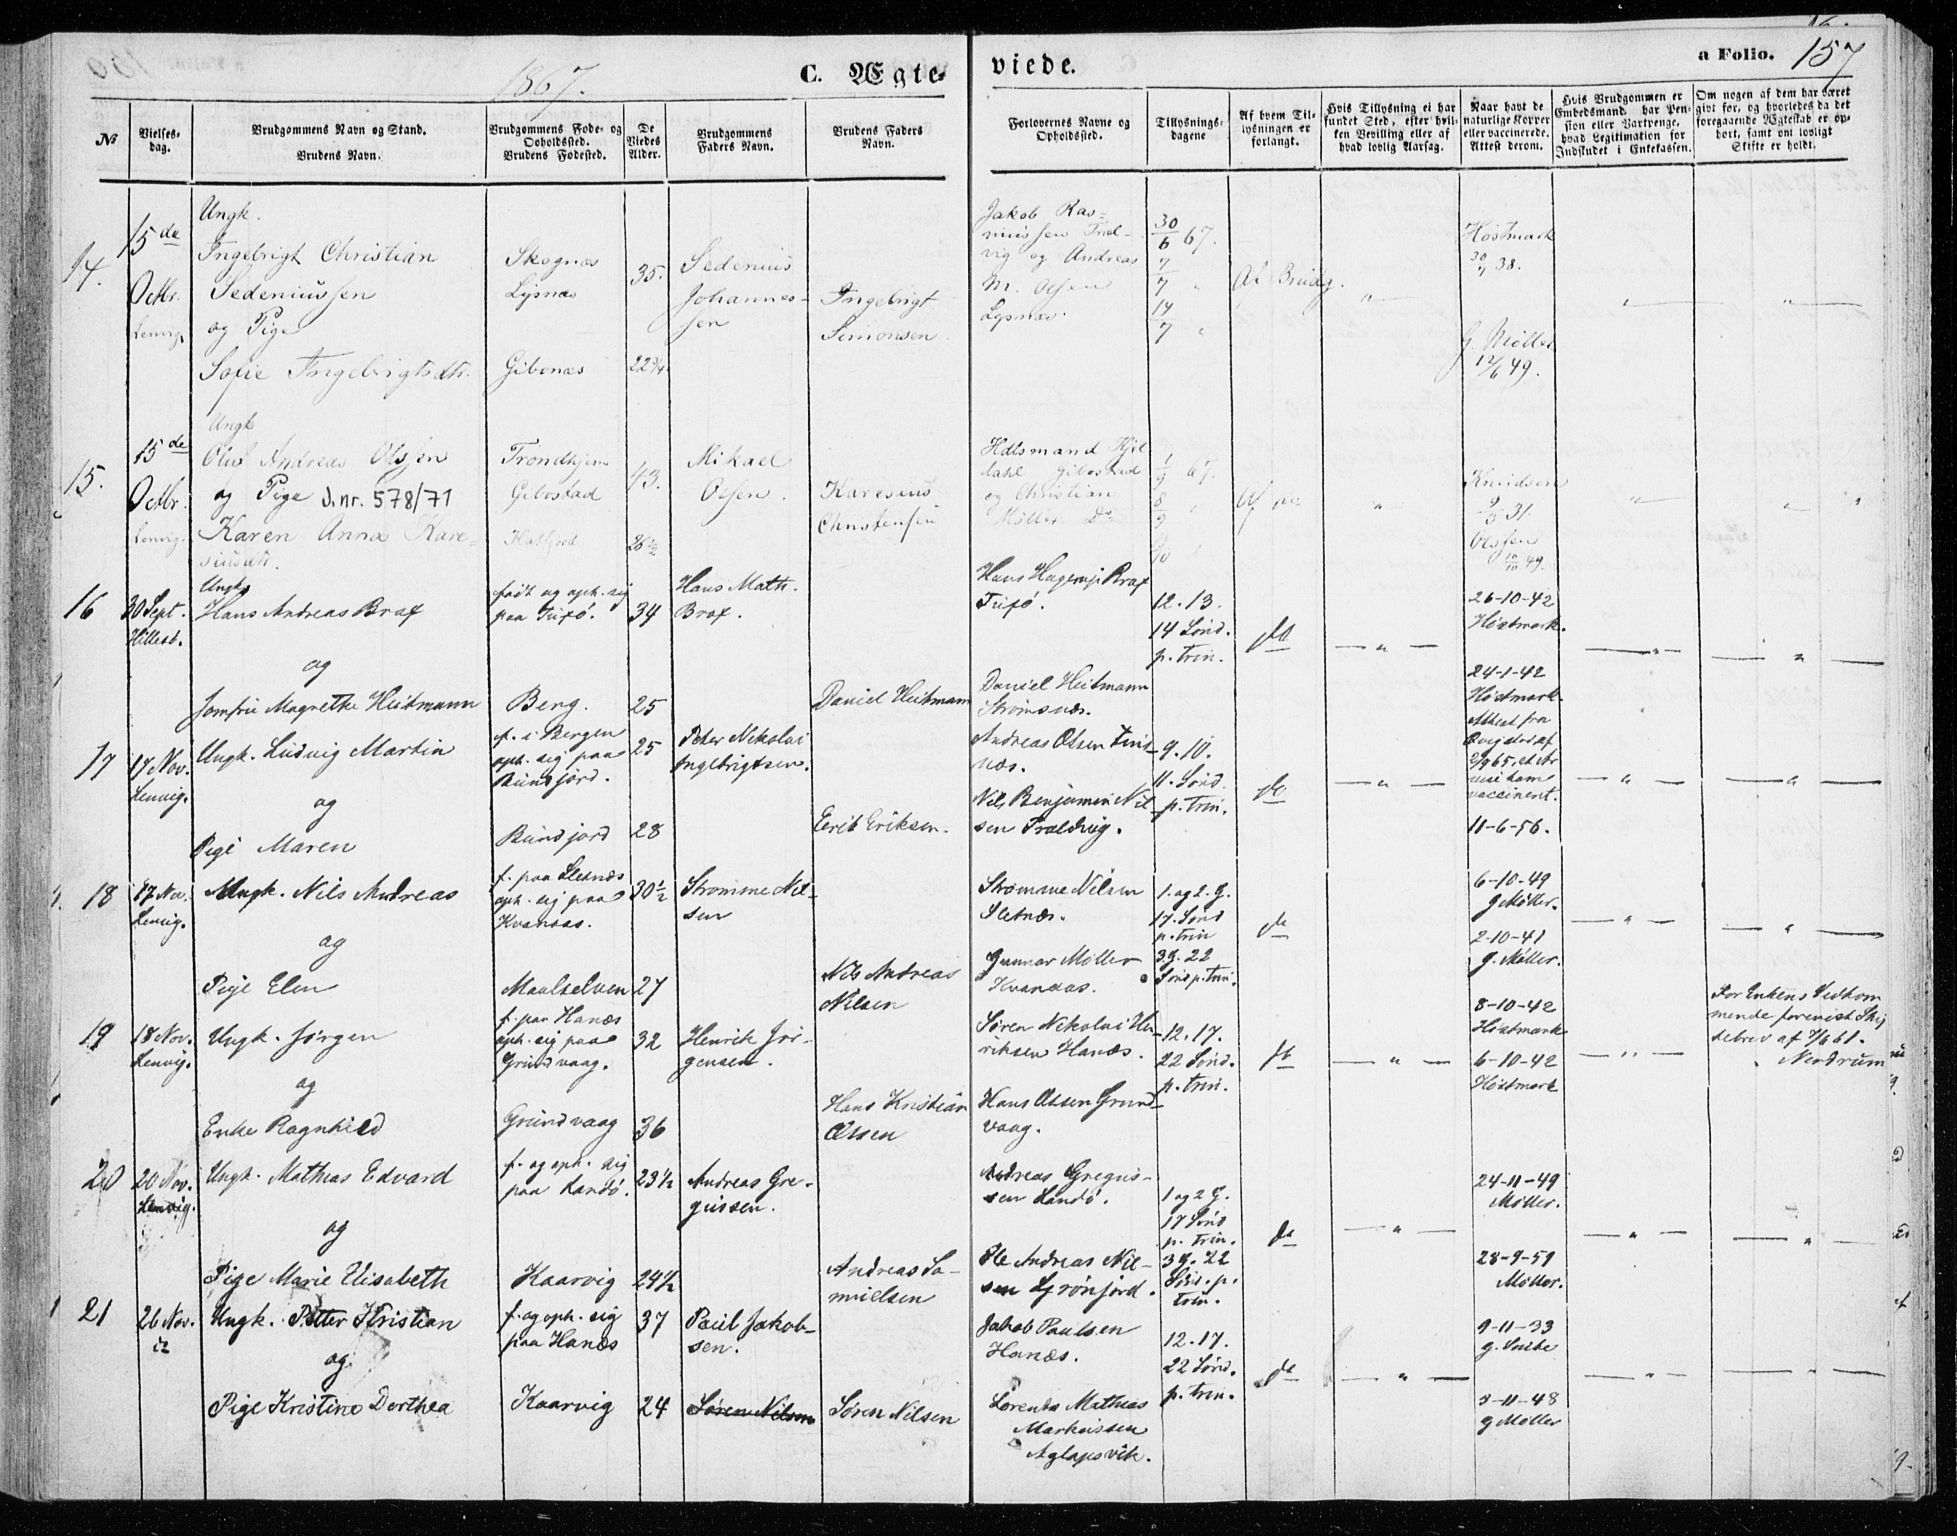 1867.
C. Ægte-
viede.
a Folio. 157
№
Vielses-
dag.
Brudgommens Navn og Stand.
Brudens Navn.
Brudgommens Føde- og
Opholdssted.
Brudens Fødested.
De
Viedes
Alder.
Brudgommens
Faders Navn.
Brudens Faders
Navn.
Forlovernes Navne og
Opholdssted.
Tillysnings-
dagene
Af hvem Til-
lysningen er
forlangt.
Hvis Tillysning ei har
fundet Sted, efter hvil-
ken Bevilling eller af
hvad lovlig Aarsag.
Naar havt de
naturlige Kopper
eller vaccinerede.
Attest derom.
Hvis Brudgommen er
Embedsmand, har Pen-
sion eller Vartpenge,
hvad Legitimation for
Indskudet i Enkekassen.
Om nogen af dem har været
givt før, og hvorledes da det
foregaaende Ægteskab er op-
hørt, samt om lovligt
Skifte er holdt.
14.
15de
Octbr.
Lenvig
Ungk.
Ingebrigt Christian
Sedeniussen
og Pige
Sofie Ingebrigtsdtr.
Skognæs
Lysnæs
Gibonæs
35.
22 3/4
Sedenius
Johannes-
sen
Ingebrigt
Simonsen
Jakob Ras-
mussen Træl-
vig og Andreas
M. Olsen
Lysnæs.
30/6 67.
7/7 "
14/7 "
Af Brudg.
"
Høstmark
38.
G. Møller
12/6 49.
"
"
15.
15de
Octbr.
Lenvig.
Ungk
Oluf Andreas Olsen
og Pige J.nr. 578/71
Karen Anna Kare-
siusdtr.
Trondhjem
Gibostad
43.
26 1/2
Mikael
Olsen.
Karesius
Christensen
Hdlsmand Kjel
dahl Gibostad
og Christian
Møller Do
1/9 67.
8/9 "
"
Knudsen
31.
Olsen
49.
"
"
16
30 Sept.
Hillesb.
Ungk.
Hans Andreas Brox
og
Jomfru Magrethe Heitmann
født og oph. sig
paa Tuxø.
Berg.
34
25
Hans Math.
Brox.
Daniel Heitmann
Hans Hagerup Brox
Tuxø.
Daniel Heitmann
Strømsnæs.
12. 13.
14 Sønd.
p. trin.
do
— " —
26-10-42
Høstmark.
24-1-42
Høstmark.
— " —
— " —
17
17 Nov.
Lenvig.
Ungk. Ludvig Martin
og
Pige Maren
f. i Bergen
oph. sig paa
Bundfjord.
Bundfjord
25
28
Peter Nikolai
Ingebrigtsen.
Erik Eriksen.
Andreas Olsen Fins-
næs.
Nils Benjamin Nil-
sen Trældvig.
9. 10.
11. Sønd.
p. trin.
do
— " —
Attest fra
vaccineret.
11-6-56.
— " —
— " —
18
17 Nov.
Lenvig.
Ungk. Nils Andreas
og
Pige Elen
f. paa Sletnæs
oph. sig paa
Kvanaas.
Maalselven
30 1/2
27
Strømme Nil-
sen
Nils Andreas
Nilsen
Strømme Nilsen
Sletnæs.
Gunnar Møller
Kvanaas.
1. og 2. G.
17. Sønd
p. trin
3 G. 22
Sønd p. trin.
do
6-10-49
G Møller.
2-10-41
G. Møller.
— " —
"
19
18 Nov.
Lenvig.
Ungk. Jørgen
og
Enke Ragnhild
f. paa Hanæs
oph. sig paa
Grundvaag.
Grundvaag
32
36
Henrik Jør-
gensen.
Hans Kristian
Olssen
Søren Nikolai Hen-
riksen Hanæs.
Hans Olssen Grund-
vaag.
12. 17.
22 Sønd.
p. trin.
do
— " —
8-10-42
Høstmark
6-10-42
Høstmark
— " —
For Enkens Vedkom
mende forevist Skif
tebrev af 7/6 61.
Nordrum
20
20 Nov.
Lenvig.
Ungk. Mathias Edvard
og
Pige Marie Elisabeth
f. og oph. sig
paa Sandø.
Kaarvig
23 1/2
24 1/2
Andreas Gre-
gussen.
Andreas Sa-
muelsen
Andreas Gregus-
sen Sandø.
Ole Andreas Nil-
sen Grønfjord.
1 og 2 G.
17 Sønd
p. trin.
3 G. 22
Sønd. p.
trin.
do
— " —
24-11-49
Møller.
28-9-59
Møller.
— " —
— " —
21
26 Nov.
Ungk. Petter Kristian
og
Pige Kristine Dorthea
f. og oph. sig
paa Hanæs
Kaarvig
37
24
Paul Jakob-
sen.
Søren Nilsen
Søren Nilsen
Jakob Paulsen
Hanæs.
Lorents Mathias
Markussen
Aglapsvik.
12. 17.
22 Sønd.
p. trin.
do
— " —
9-11-33
3-11-48
G Møller
— " —
— " —